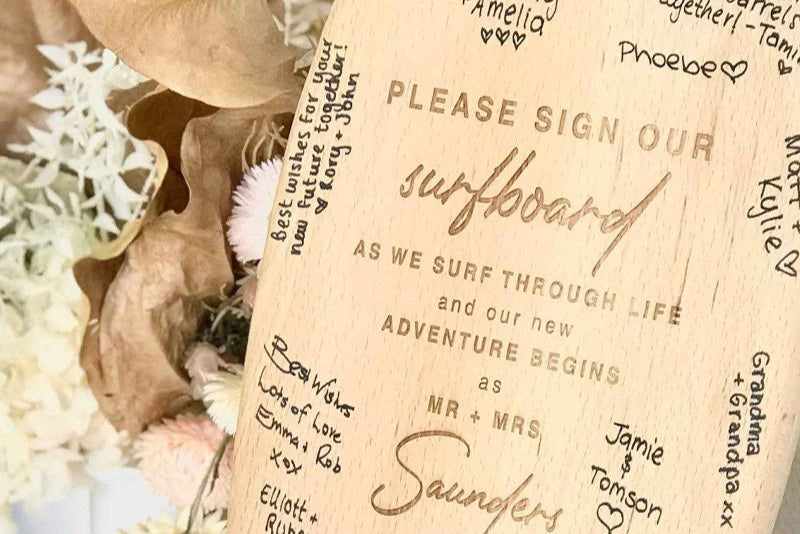 Amelia
together! - Tami
Phoebe
Best wishes for your
new future together!
Rory + John
PLEASE SIGN OUR
surfboard
Matt +
Kylie
AS WE SURF THROUGH LIFE
and our new
ADVENTURE BEGINS
as
MR + MRS
Saunders
Best Wishes
Lots of Love
Emma + Rob
xox
Elliott +
Jamie
&
Tomson
Grandma
+ Grandpa xx